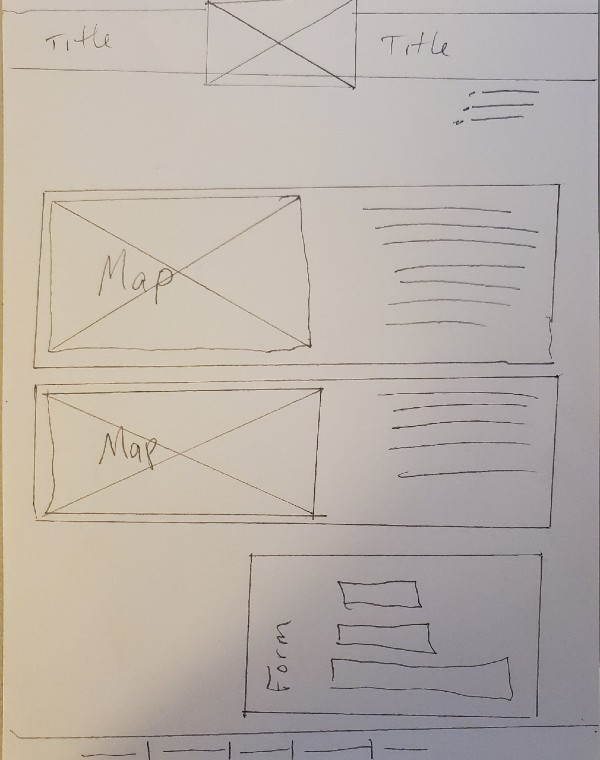 Title
Title
Map
Map
Form